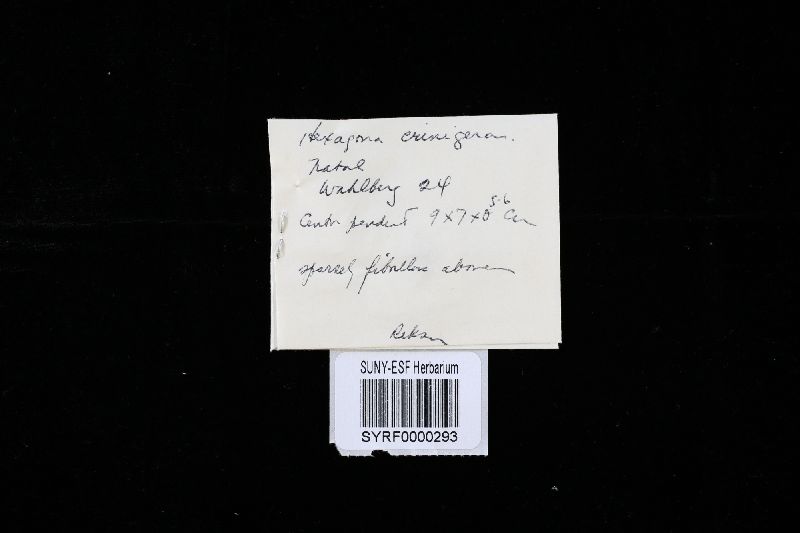 Hexagona crinigera
Natal
Wahlberg 24
5-6
9 x 7 x Cm
sparsely fibrillose above
SUNY-ESF Herbarium
SYRF0000293